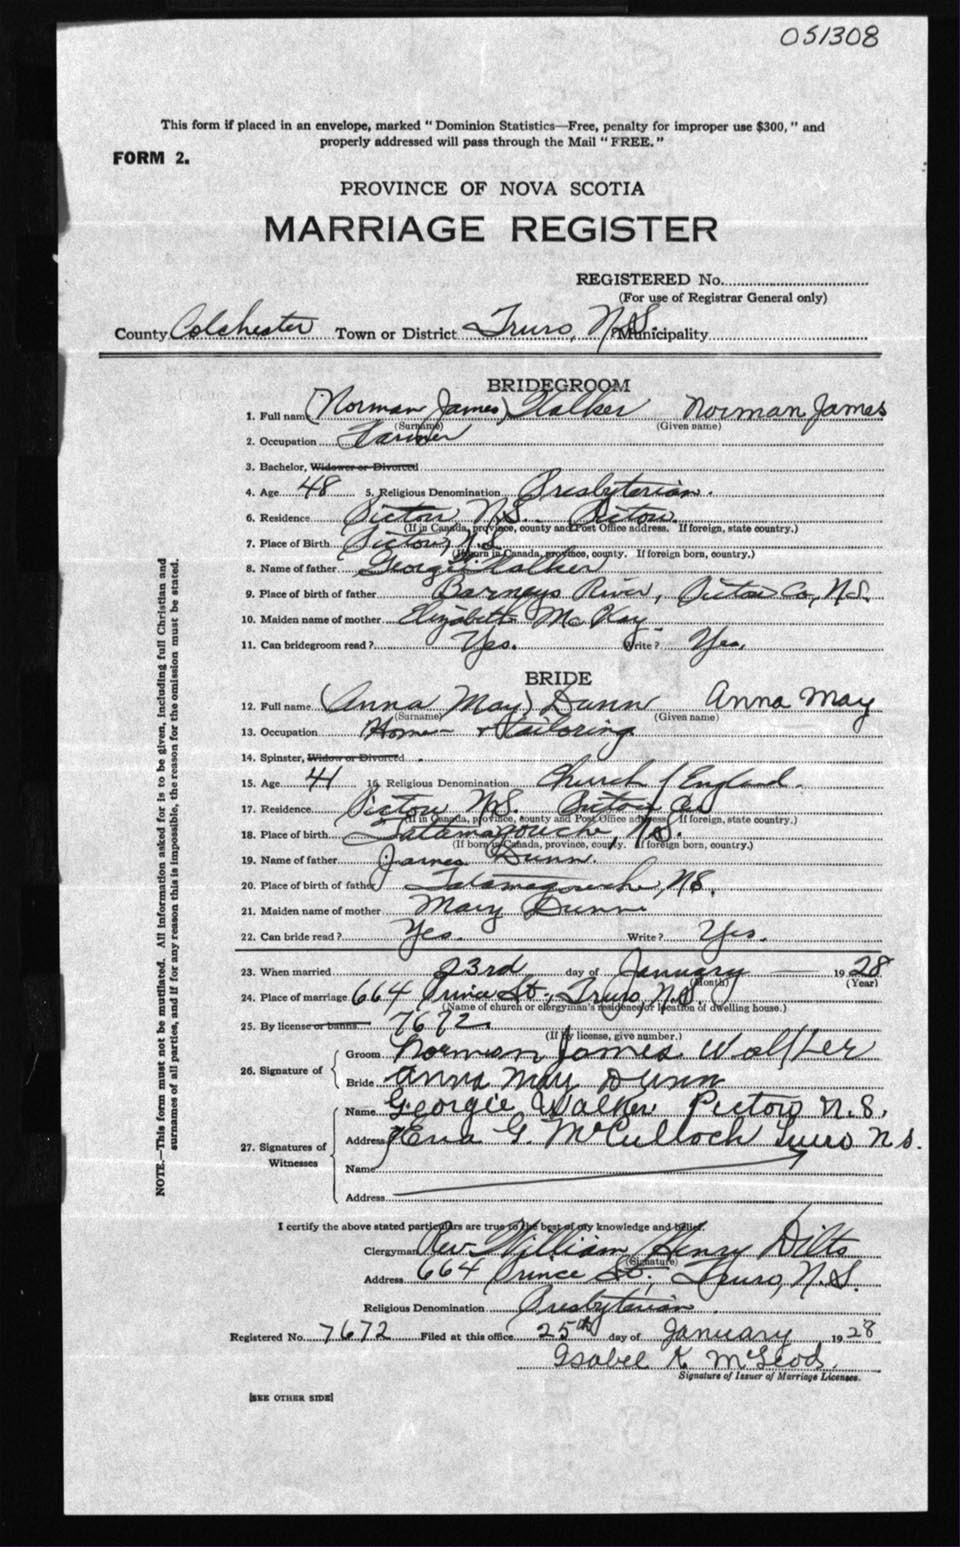 051308
This form if placed in an envelope, marked "Dominion Statistics—Free, penalty for improper use $300," and
properly addressed will pass through the Mail "FREE."
FORM 2.
PROVINCE OF NOVA SCOTIA
MARRIAGE REGISTER
REGISTERED No.
(For use of Registrar General only)
County Colchester Town or District Truro, N.S. Municipality
BRIDEGROOM
1. Full name (Norman James) Walker Norman James
(Surname) (Given name)
2. Occupation Farmer
3. Bachelor, Widower or Divorced
4. Age 48 5. Religious Denomination Presbyterian.
6. Residence Pictou N.S. Pictou
(If in Canada, province, county and Post Office address. If foreign, state country.)
7. Place of Birth Pictou, N.S.
(If born in Canada, province, county. If foreign born, country.)
8. Name of father George Walker
9. Place of birth of father Barneys River, Pictou Co, N.S.
10. Maiden name of mother Elizabeth McKay
11. Can bridegroom read? Yes. Write? Yes.
BRIDE
12. Full name (Anna May) Dunn Anna May
(Surname) (Given name)
13. Occupation Home + Tailoring
14. Spinster, Widow or Divorced
15. Age 41 16. Religious Denomination Church of England.
17. Residence Pictou N.S. Pictou Co
(If in Canada, province, county and Post Office address. If foreign, state country.)
18. Place of birth Tatamagouche, N.S.
(If born in Canada, province, county. If foreign born, country.)
19. Name of father James Dunn.
20. Place of birth of father Tatamagouche, N.S.
21. Maiden name of mother Mary Dunn
22. Can bride read? Yes. Write? Yes.
23. When married 23rd day of January 1928
(Month) (Year)
24. Place of marriage 664 Prince St., Truro, N.S.
(Name of church or clergyman's residence or location of dwelling house.)
25. By license or banns 7672
(If by license, give number.)
26. Signature of Groom Norman James Walker
Bride Anna May Dunn
27. Signatures of Witnesses Name Georgie Walker Pictou N.S.
Address Ena G. McCulloch Truro N.S.
Name
Address
I certify the above stated particulars are true to the best of my knowledge and belief.
Clergyman Rev. William Henry Dilts
(Signature)
Address 664 Prince St., Truro, N.S.
Religious Denomination Presbyterian.
Registered No. 7672 Filed at this office 25th day of January 1928
Isabel K. McLeod.
Signature of Issuer of Marriage Licenses.
[SEE OTHER SIDE]
NOTE.—This form must not be mutilated. All information asked for is to be given, including full Christian and
surnames of all parties, and if for any reason this is impossible, the reason for the omission must be stated.